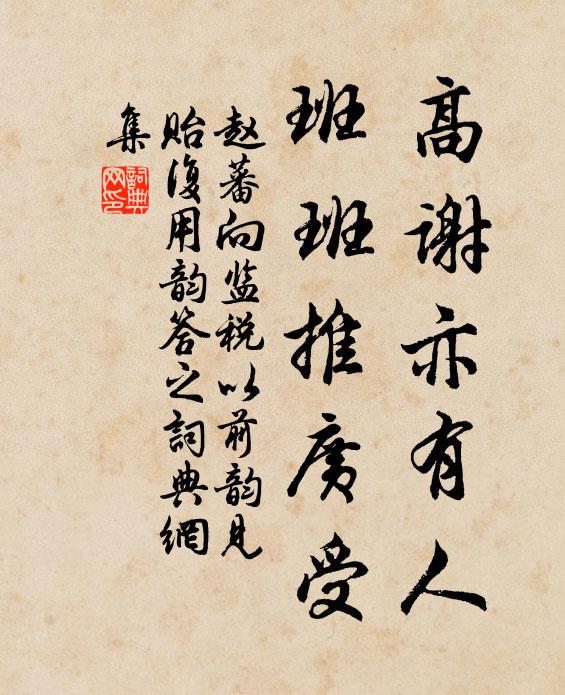 高谢亦有人
班班推廣受
赵蕃向监税以前韵见
贻復用韵答之詞典網
集
詞典
网印